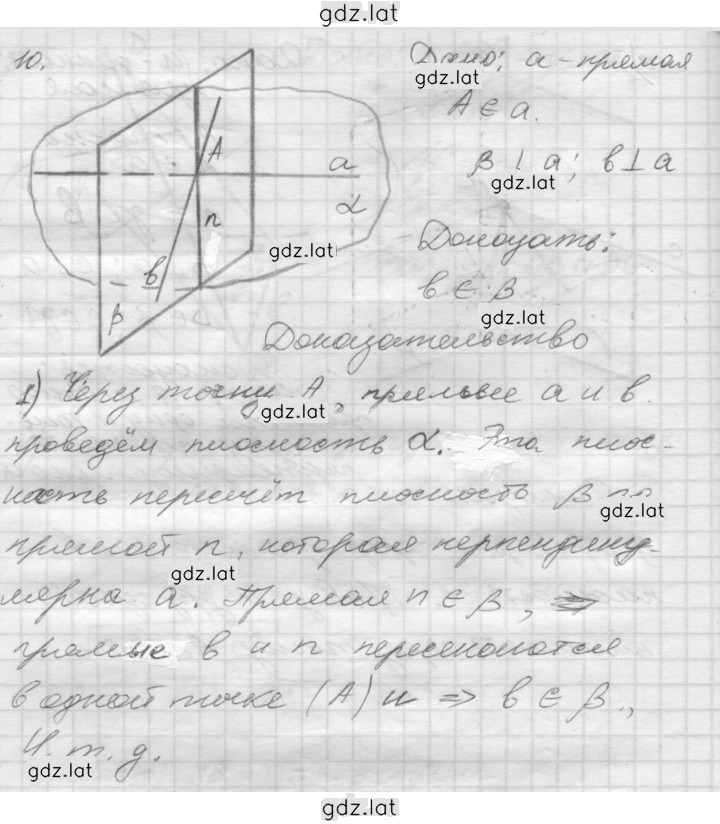 gdz.lat
10.
Дано: a - прямая
gdz.lat
A ∈ a.
β ⊥ a; b ⊥ a
gdz.lat
A
a
n
α
b
β
gdz.lat
Доказать:
b ∈ β
gdz.lat
Доказательство
1) Через точки A, прямые a и b
gdz.lat
проведём плоскость α. Эта плос-
кость пересечёт плоскость β по
gdz.lat
прямой n, которая перпендику-
gdz.lat
лярна a. Прямая n ∈ β, ⇒
прямые b и n пересекаются
в одной точке (A) и ⇒ b ∈ β.,
Ч.т.д.
gdz.lat
gdz.lat